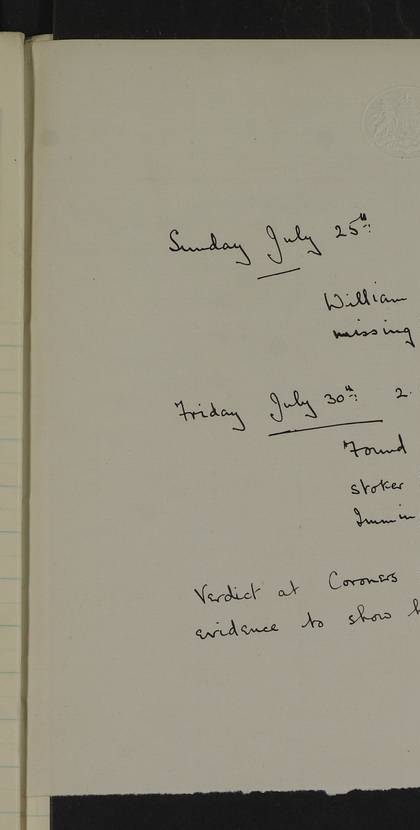 Sunday July 25th
William
missing
Friday July 30th 2.
Found
stoker
Verdict at Coroners
evidence to show